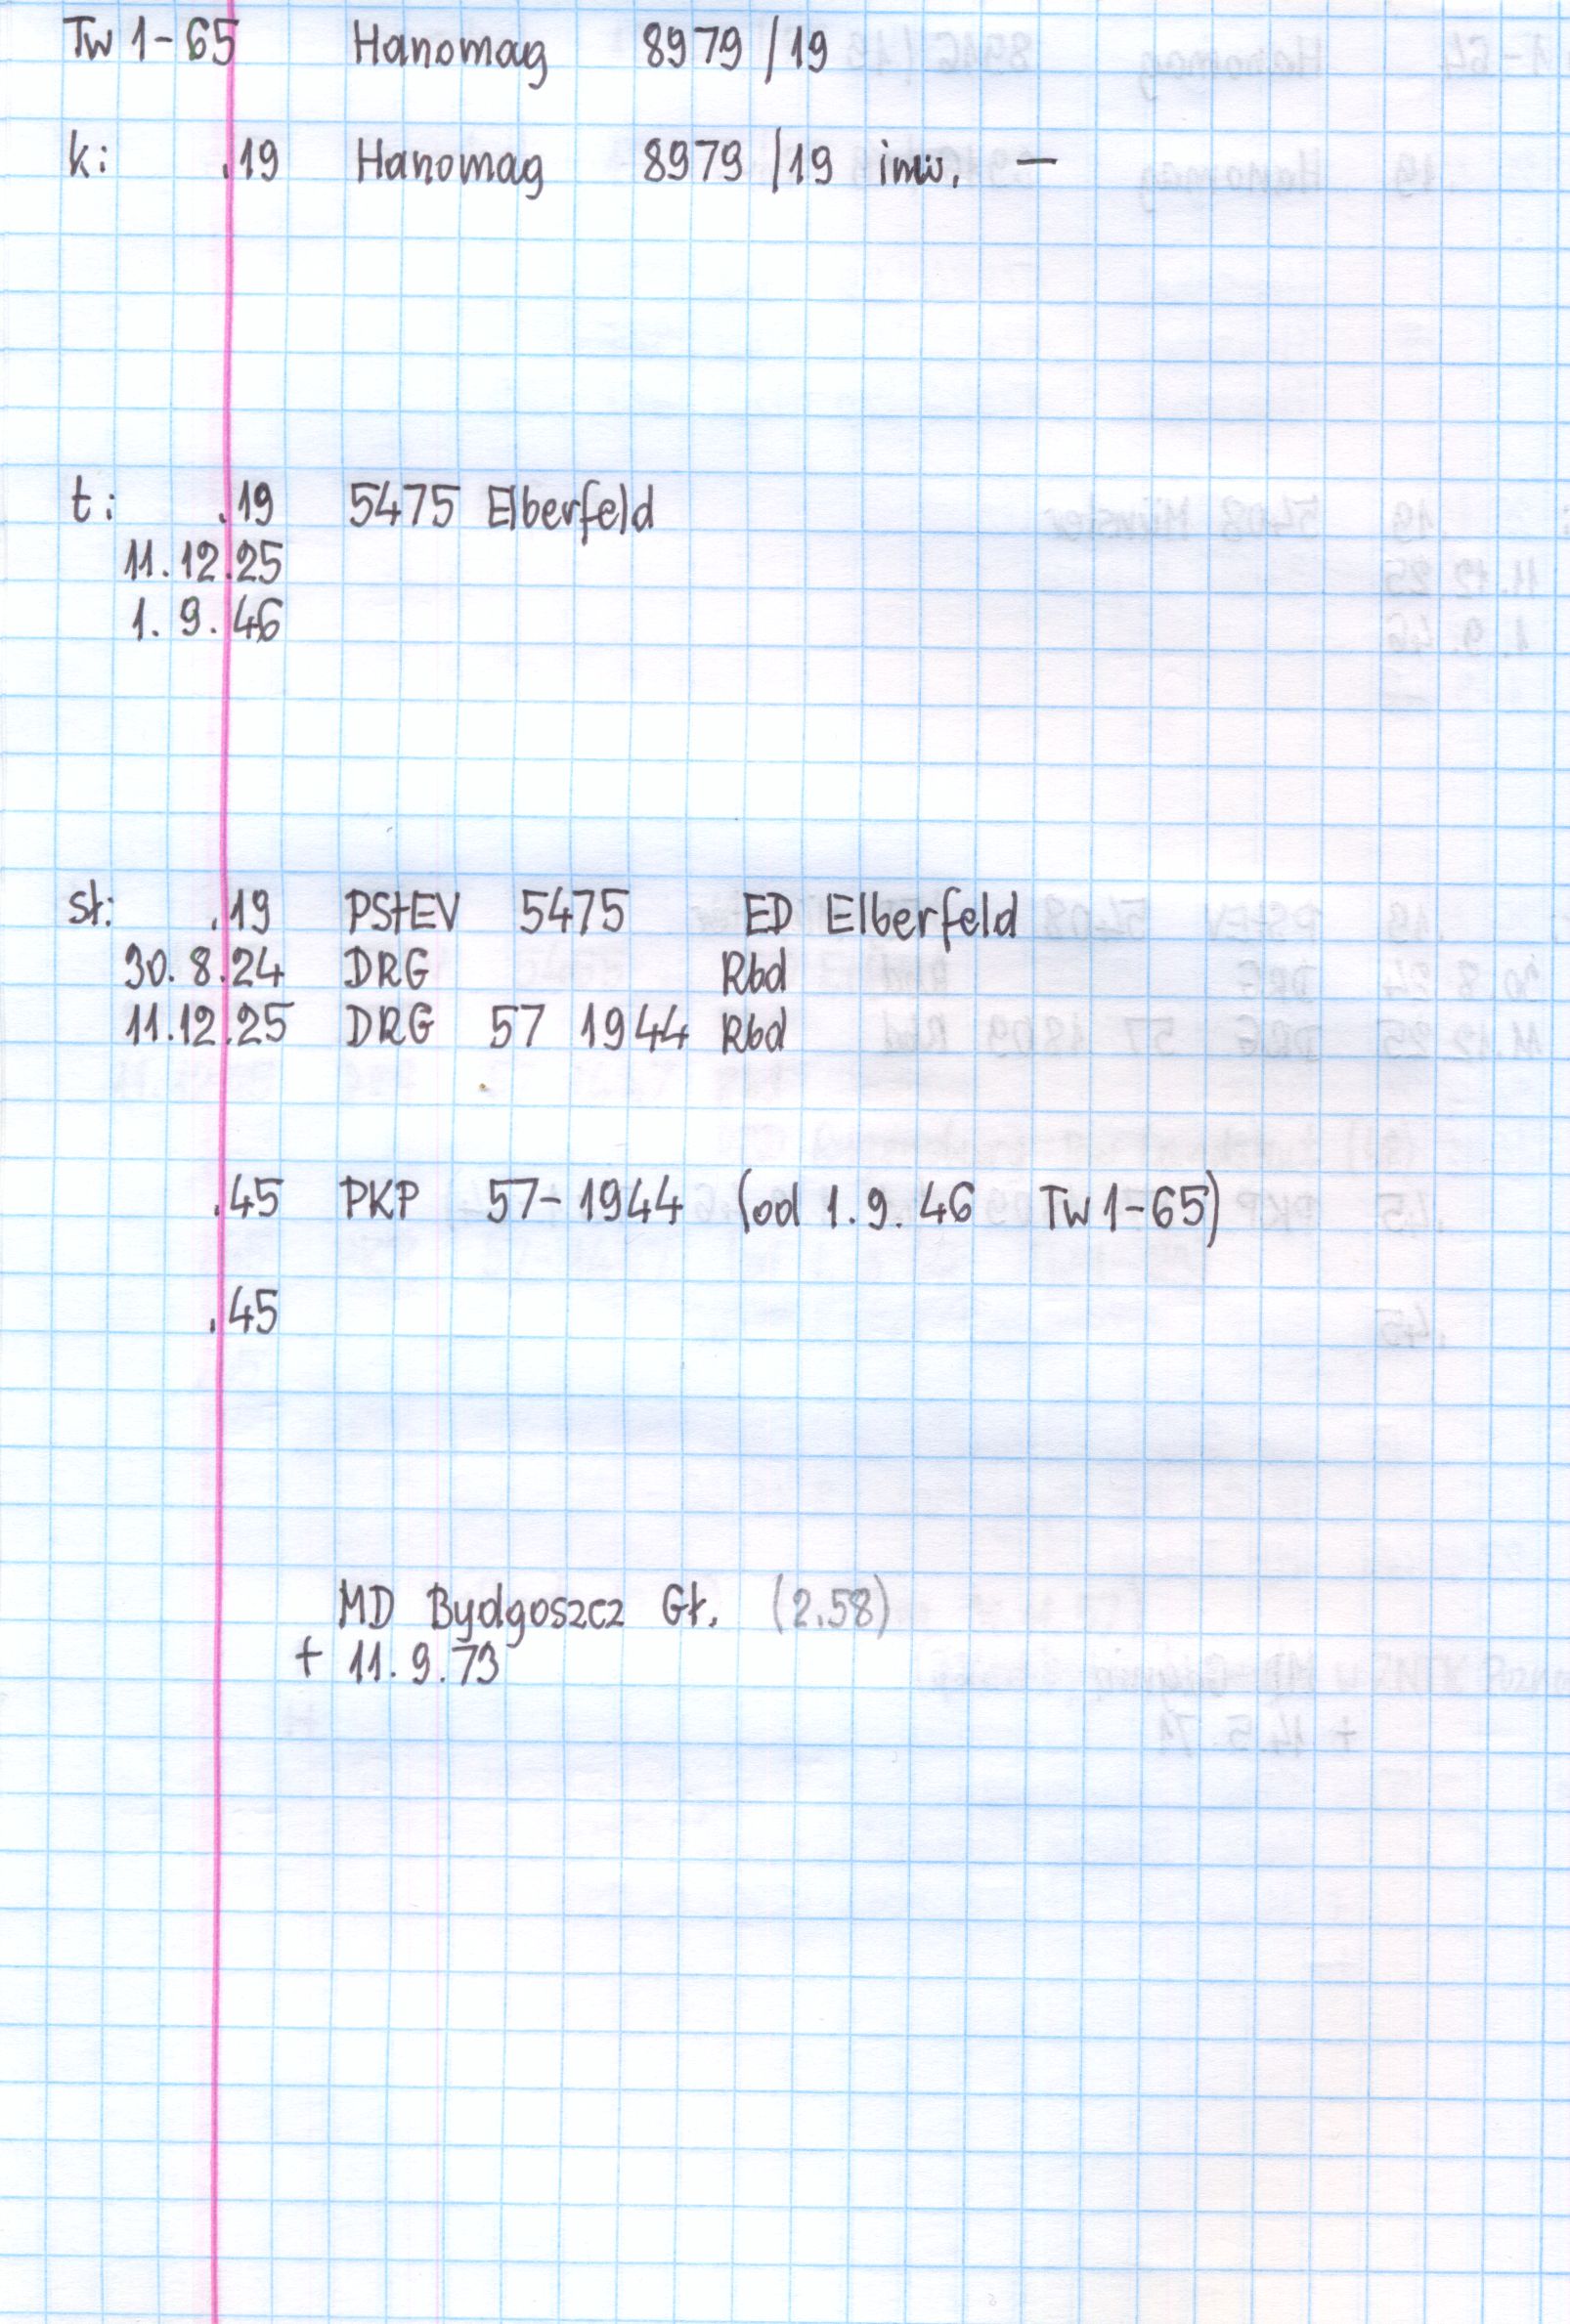 Tw 1-65 Hanomag 8979/19
k: .19 Hanomag 8979/19 inw. —
t: .19 5475 Elberfeld
11.12.25
1.9.46
st: .19 PStEV 5475 ED Elberfeld
30.8.24 DRG Rbd
11.12.25 DRG 57 1944 Rbd
.45 PKP 57-1944 (od 1.9.46 Tw 1-65)
.45
MD Bydgoszcz Gł. (2.58)
+ 11.9.73